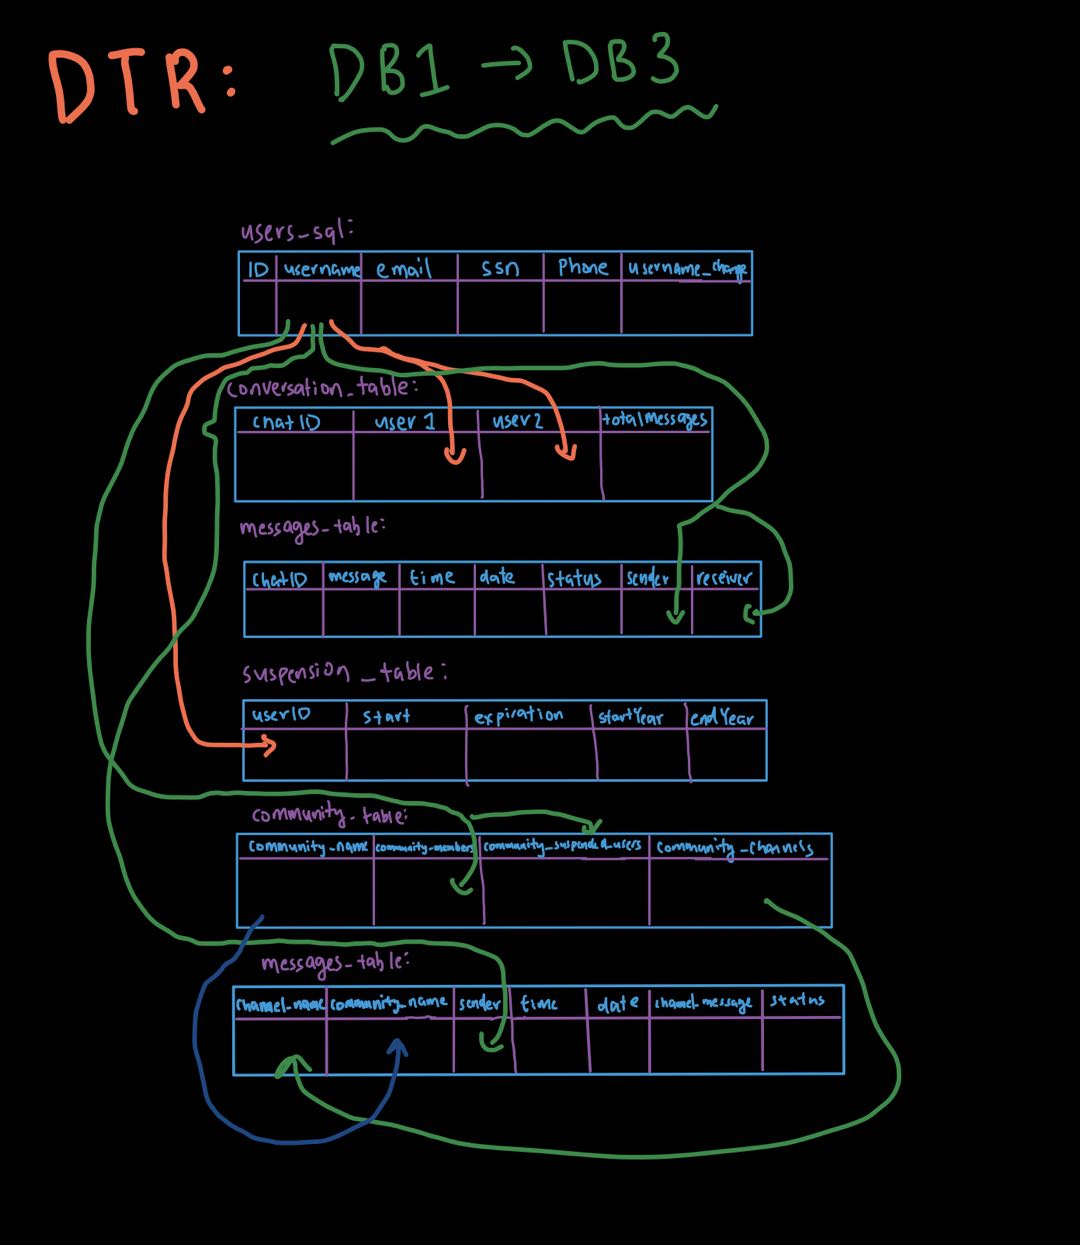 DTR: DB1 → DB3
users_sql:
ID username email ssn phone username_change
conversation_table:
chatID user1 user2 totalmessages
messages_table:
chatID message time date status sender receiver
suspension_table:
userID start expiration startYear endYear
community_table:
community_name community_members community_suspended_users community_channels
messages_table:
channel_name community_name sender time date channel_message status